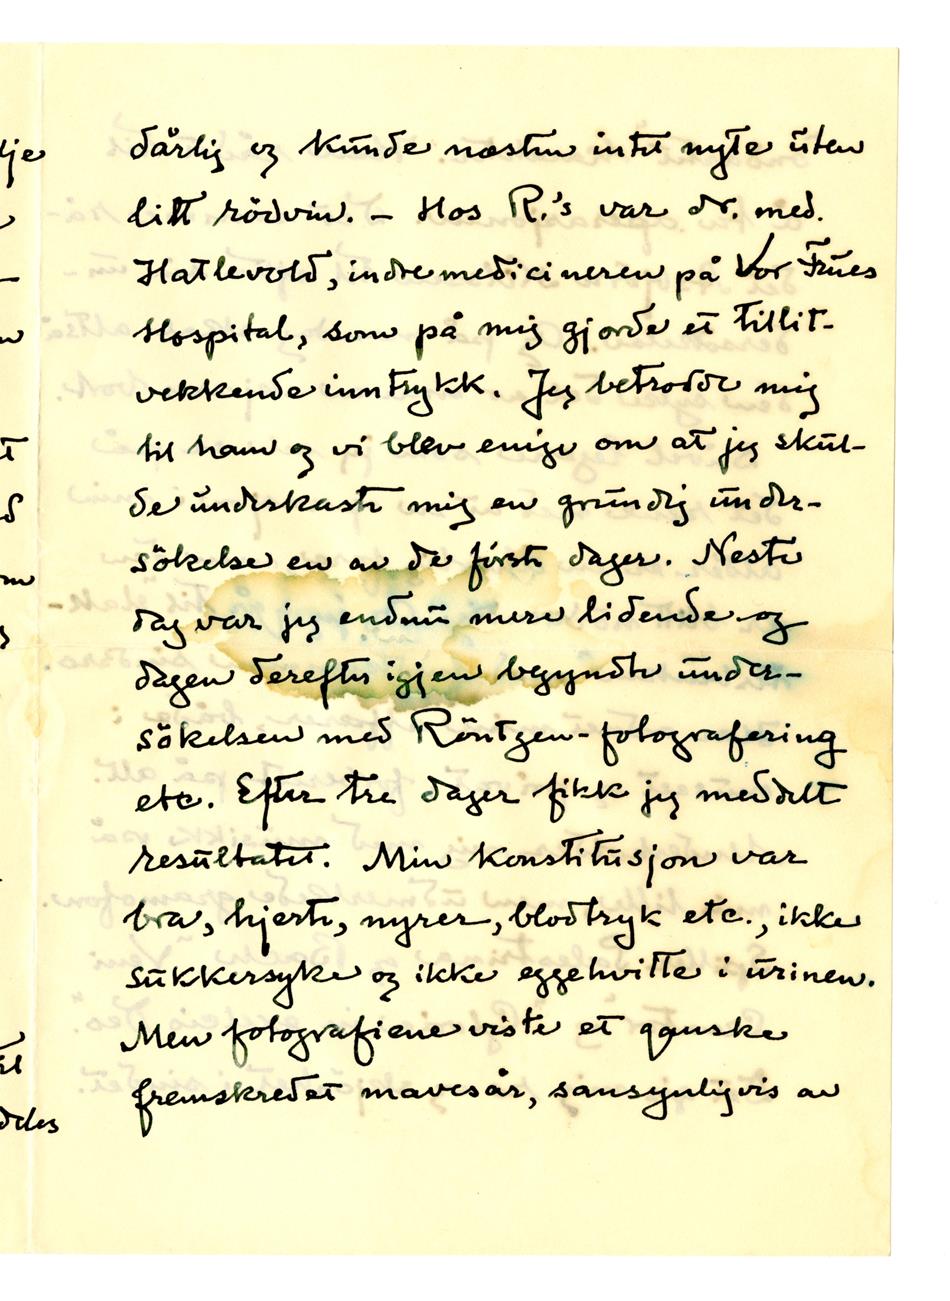 dårlig og kunde næsten intet nyte uten
litt rödvin. – Hos R.'s var dr. med.
Hatlevold, indremedicineren på Vor Frues
Hospital, som på mig gjorde et tillit-
vekkende inntrykk. Jeg betrodde mig
til ham og vi blev enige om at jeg skul-
de underkaste mig en grundig under-
sökelse en av de förste dager. Neste
dag var jeg endnu mere lidende og
dagen derefter igjen begyndte under-
sökelsen med Röntgen-fotografering
etc. Efter tre dager fikk jeg meddelt
resultatet. Min konstitusjon var
bra, hjerte, nyrer, blodtryk etc., ikke
sukkersyke og ikke eggehvitte i urinen.
Men fotografiene viste et ganske
fremskredet mavesår, sansynligvis av